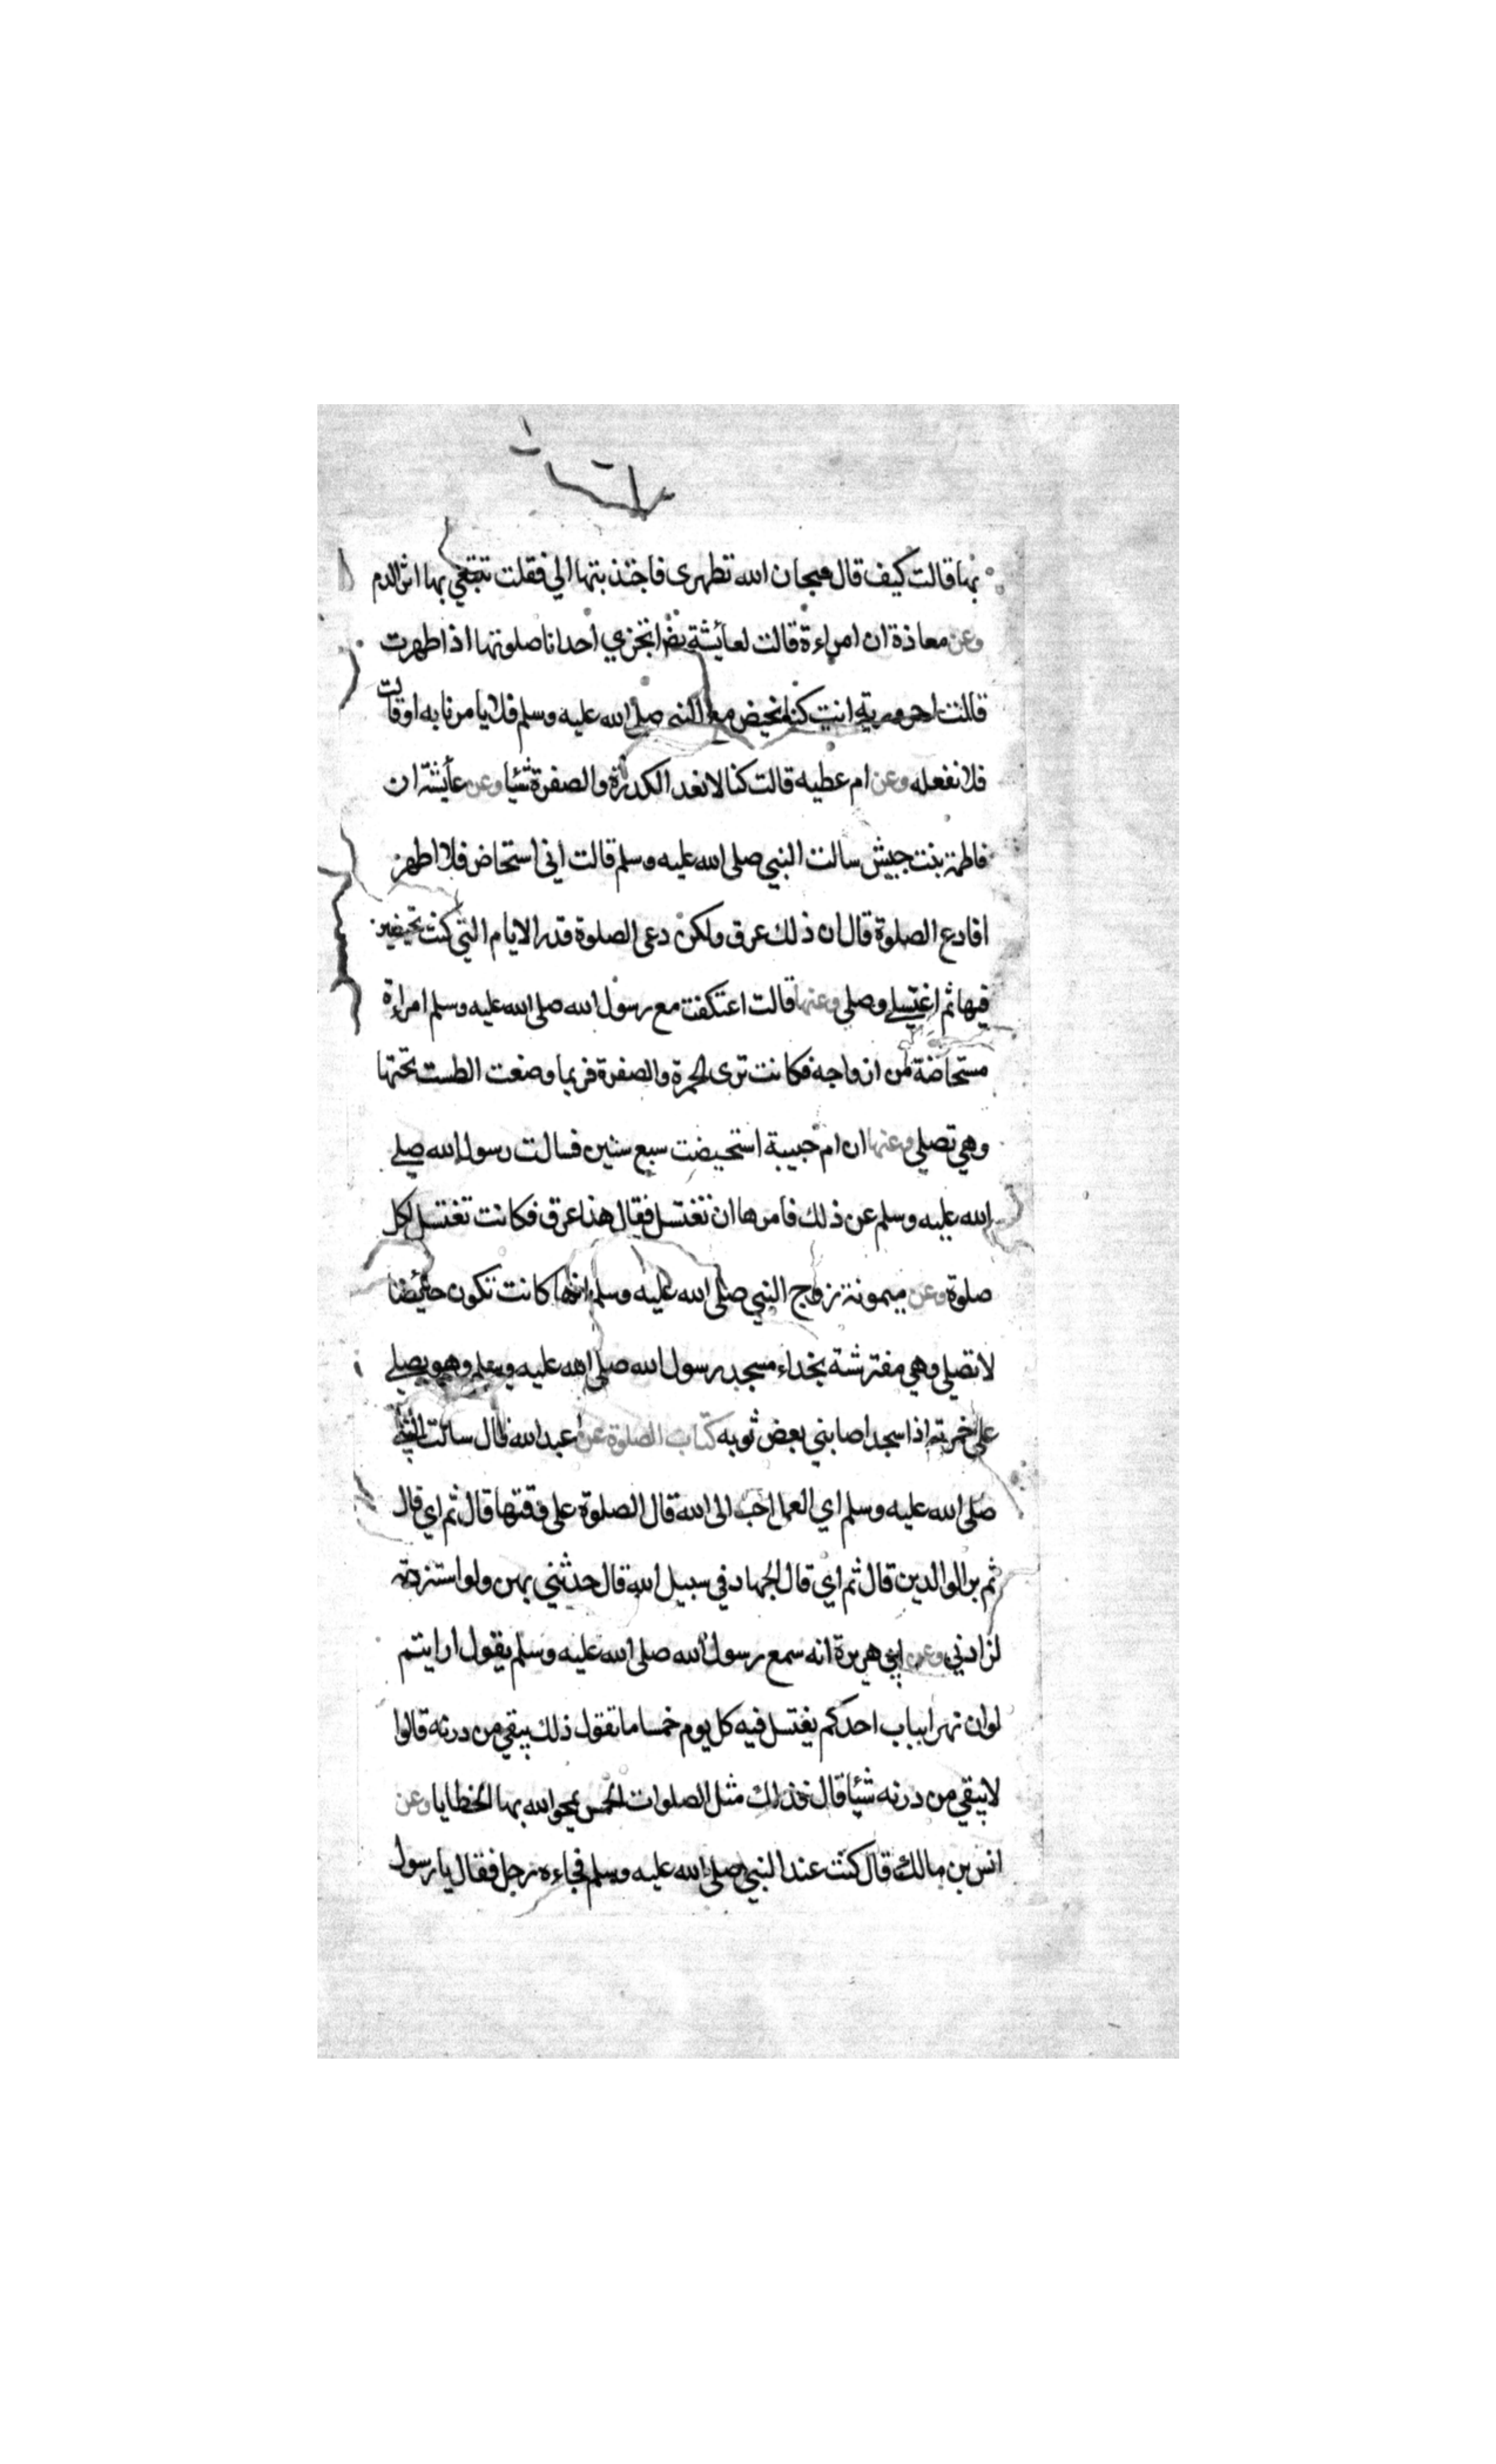 بها قالت كيف قال سبحان الله تطهرى فاجتذبتها الي فقلت تتبعي بها اثر الدم
وعن معاذة ان امراءة قالت لعائشة اتجزي احدانا صلوتها اذا طهرت
قالت احرورية انت كنا نحيض مع النبي صلى الله عليه وسلم فلا يامرنا به او قالت
فلا نفعله وعن ام عطيه قالت كنا لا نعد الكدرة والصفرة شيئا وعن عائشة ان
فاطمة بنت حبيش سالت النبي صلى الله عليه وسلم قالت اني استحاض فلا اطهر
افادع الصلوة قال ان ذلك عرق ولكن دعى الصلوة قدر الايام التي كنت تحيضين
فيها ثم اغتسلي وصلي وعنها قالت اعتكفت مع رسول الله صلى الله عليه وسلم امراءة
مستحاضة من ازواجه فكانت ترى الحمرة والصفرة فربما وضعت الطست تحتها
وهي تصلي وعنها ان ام حبيبة استحيضت سبع سنين فسالت رسول الله صلى
الله عليه وسلم عن ذلك فامرها ان تغتسل فقال هذا عرق فكانت تغتسل لكل
صلوة وعن ميمونة زوج النبي صلى الله عليه وسلم انها كانت تكون حائضا
لا تصلي وهي مفترشة بحذاء مسجد رسول الله صلى الله عليه وسلم وهو يصلي
على خمرته اذا سجد اصابني بعض ثوبه كتاب الصلوة عن عبد الله قال سالت النبي
صلى الله عليه وسلم اي العمل احب الى الله قال الصلوة على وقتها قال ثم اي قال
ثم بر الوالدين قال ثم اي قال الجهاد في سبيل الله قال حدثني بهن ولو استزدته
لزادني وعن ابي هريرة انه سمع رسول الله صلى الله عليه وسلم يقول ارايتم
لو ان نهرا بباب احدكم يغتسل فيه كل يوم خمسا ما تقول ذلك يبقي من درنه قالوا
لا يبقي من درنه شيئا قال فذلك مثل الصلوات الخمس يمحو الله بها الخطايا وعن
انس بن مالك قال كنت عند النبي صلى الله عليه وسلم فجاءه رجل فقال يا رسول